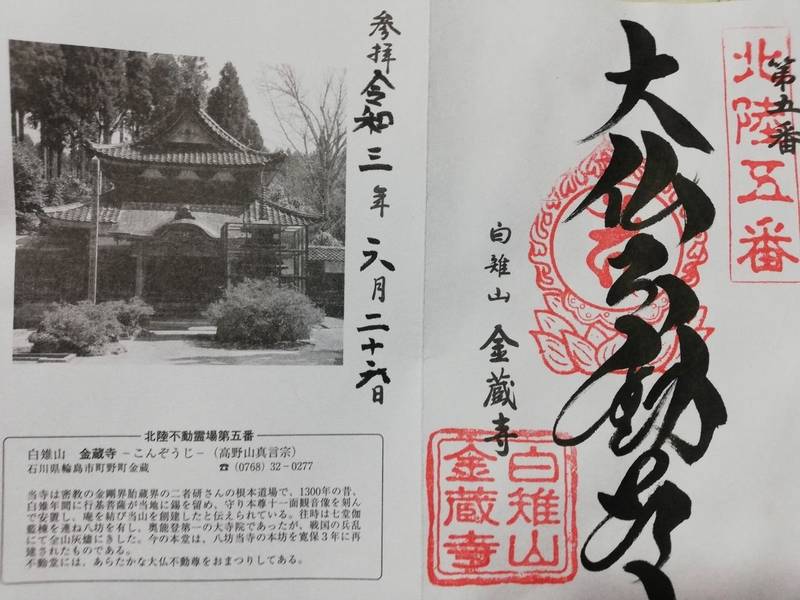 参拝 令和三年六月二十六日
北陸不動霊場第五番
白雉山 金蔵寺 −こんぞうじ− (高野山真言宗)
石川県輪島市町野町金蔵 ☎ (0768) 32−0277
当寺は密教の金剛界胎蔵界の二者研さんの根本道場で、1300年の昔、
白雉年間に行基菩薩が当地に錫を留め、守り本尊十一面観音像を刻ん
で安置し、庵を結び当山を創建したと伝えられている。往時は七堂伽
藍棟を連ね八坊を有し、奥能登第一の大寺院であったが、戦国の兵乱
にて全山灰燼にきした。今の本堂は、八坊当寺の本坊を寛保３年に再
建されたものである。
不動堂には、あらたかな大仏不動尊をおまつりしてある。
北陸五番
第五番
大仏不動尊
白雉山 金蔵寺
白雉山
金蔵寺